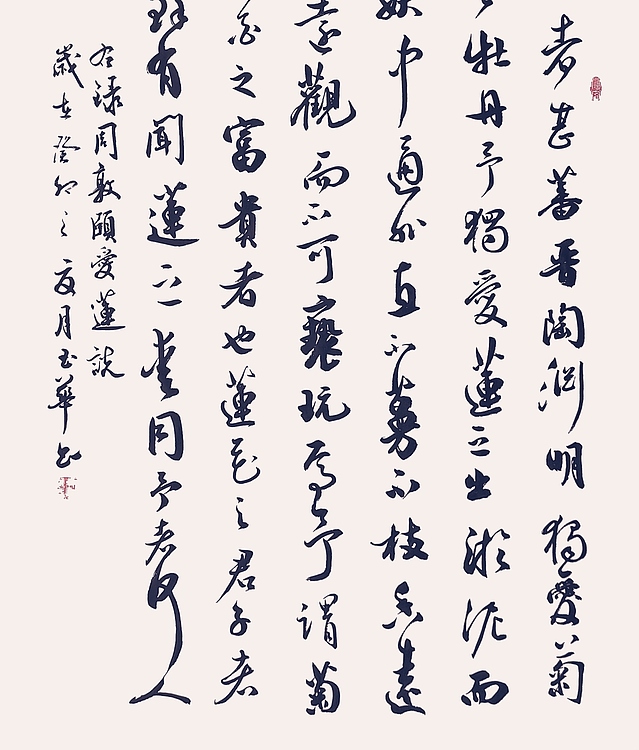 者甚蕃晉陶淵明獨愛菊
牡丹予獨愛蓮之出淤泥而
妖中通外直不蔓不枝香遠
遠觀而不可褻玩焉予謂菊
花之富貴者也蓮花之君子者
鮮有聞蓮之愛同予者何人
右録周敦頤愛蓮說
歲在癸卯之夏月玉華書